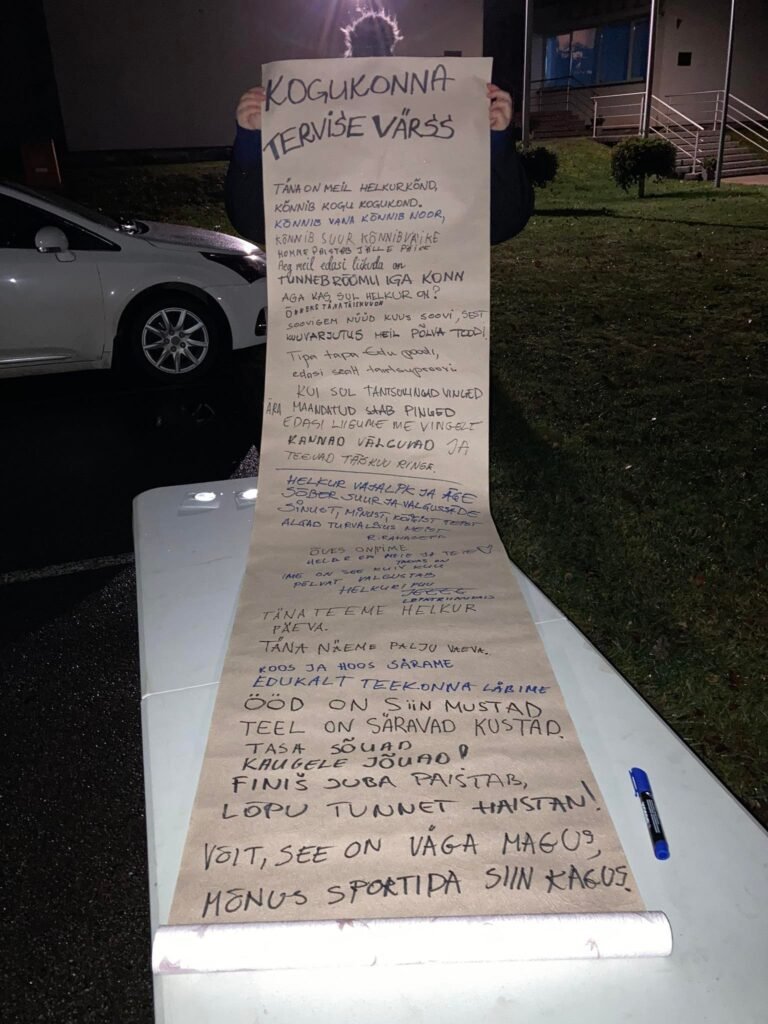 KOGUKONNA
TERVISE VÄRSS
TÄNA ON MEIL HELKURKÕND,
KÕNNIB KOGU KOGUKOND.
KÕNNIB VANA KÕNNIB NOOR,
KÕNNIB SUUR KÕNNIB VÄIKE
HOMME PAISTAB JÄLLE PÄIKE
Aeg meil edasi liikuda on
TUNNEB RÕÕMU IGA KONN
AGA KAS SUL HELKUR ON?
ÕNNEKS TÄNA TÄISKUU ON
SOOVIGEM NÜÜD KUUS SOOVI, SEST
KUUVARJUTUS MEIL PÕLVA TOODI.
Tipa tapa Edu poodi,
edasi sealt tantsuproovi
KUI SUL TANTSUKINGAD VINGED
ÄRA MAANDATUD SAAB PINGED
EDASI LIIGUME ME VINGELT
KANNAD VÄLGUVAD JA
TEEVAD TÄISKUU RINGE.
HELKUR VAJALIK JA ÄGE
SÕBER SUUR JA VALGUSSÄDE
SINUST, MINUST, KÕIGIST TEIST
ALGAB TURVALISUS MEIST
ÕUES ON PIME
IME ON SEE KUIV KUU
PÕLVAT VALGUSTAB
HELKURIPUU
TÄNA TEEME HELKUR
PÄEVA.
TÄNA NÄEME PALJU VAEVA.
KOOS JA HOOS SÄRAME
EDUKALT TEEKONNA LÄBIME
ÖÖD ON SIIN MUSTAD
TEEL ON SÄRAVAD KUSTAD.
TASA SÕUAD
KAUGELE JÕUAD!
FINIŠ JUBA PAISTAB,
LÕPU TUNNET HAISTAN!
VÕIT, SEE ON VÄGA MAGUS,
MÕNUS SPORTIDA SIIN KAGUS.